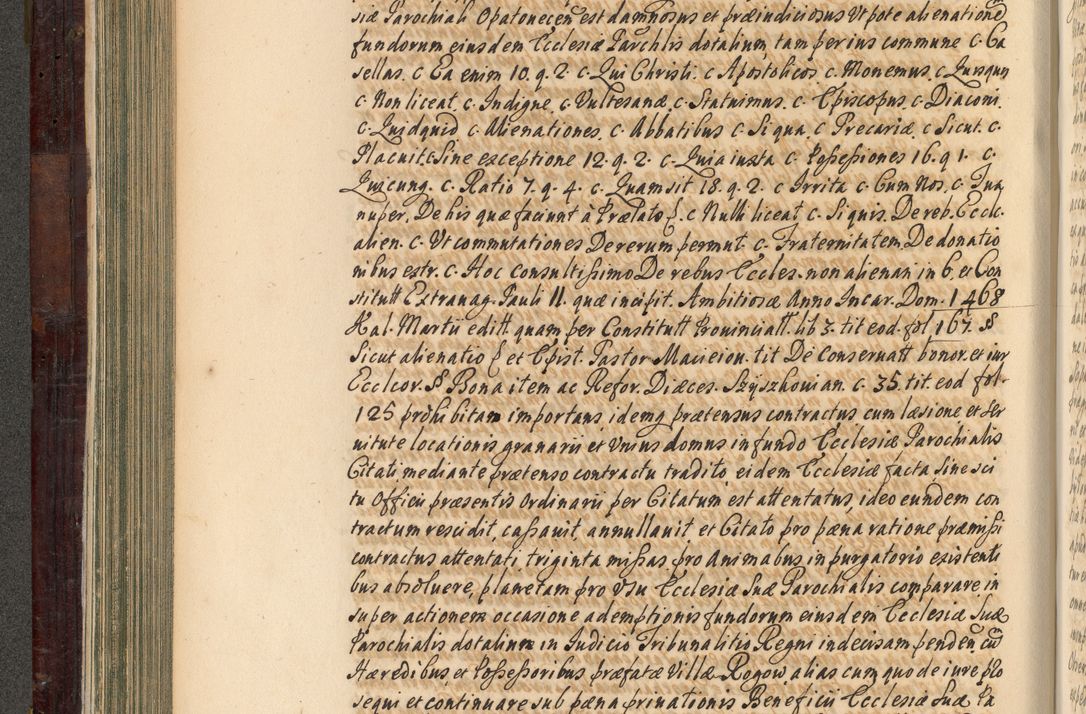 siæ Parochiali Opatonecen̄ est damnosus et præiudiciosus Vt pote alienationē
fundorum eiusdem Ecclesiæ Parchlis dotalium tam per ius commune c. Ca
sellas. c Ea enim 10. q. 2. c Qui Christi. c Apostolicos c. Monemus. c Quisquis
c. Non liceat. c. Indigne. c. Vulteranæ. c. Statuimus. c. Episcopus. c. Diaconi.
c. Quidquid c. Alienationes. c. Abbatibus c. Si qua. c Precariæ. c Sicut. c.
Placuit. c Sine exceptione 12. q. 2. c. Quia iuxta c. Possessiones 16. q 1. c.
Quicunq. c. Ratio 7. q. 4. c. Quam sit 18. q. 2. c Irrita c. Cum Nos. c. Tua
nuper. De his quæ faciunt à Prælato f. c Nulli liceat c. Si quis. De reb. Eccle.
alien. c. Vt commutationes De rerum permut. c. Fraternitatem De donatio
nibus extr. c. Hoc consultissimo De rebus Eccles. non alienan in 6. et Con
stitutt Extrauag. Pauli II. quæ incipit. Ambitiosæ Anno Incar. Dom. 1468
Kal. Martii editt quam per Constitutt Prouinciatt. lib 3. tit eod. fol 167. §
Sicut alienatio f et Epist. Pastor Macieion. tit De Conseruatt bonor. et iur
Ecclcor. § Bona item ac Refor. Diæces. Szyszkouian. c. 35. tit. eod fol.
125 prohibitam importans, idemq prætensus contractus cum læsione et ser
uitute locationis granarii et Vnius domus in fundo Ecclesiæ Parochialis
Citati mediante prætenso contractu tradito, eidem Ecclesiæ facta, sine sci
tu Officii præsentis Ordinarii per Citatum est attentatus, ideo eundem con
tractum rescidit, cassauit, annullauit, et Citato pro pæna ratione præmissi
contractus attentati, triginta missas pro Animabus in purgatorio existenti
bus absoluere, planetam pro Vsu Ecclesiæ Suæ Parochialis comparare, in
super actionem occasione ademptionis fundorum eiusdem Ecclesiæ Suæ
Parochialis dotalium in Iudicio Tribunalitio Regni indecisam penden̄. cū
Hæredibus, et Possessoribus præfatæ Villæ Rogow alias cum quo de iure pro
sequi et continuare sub pæna priuationis Beneficii Ecclesiæ Suæ Pa